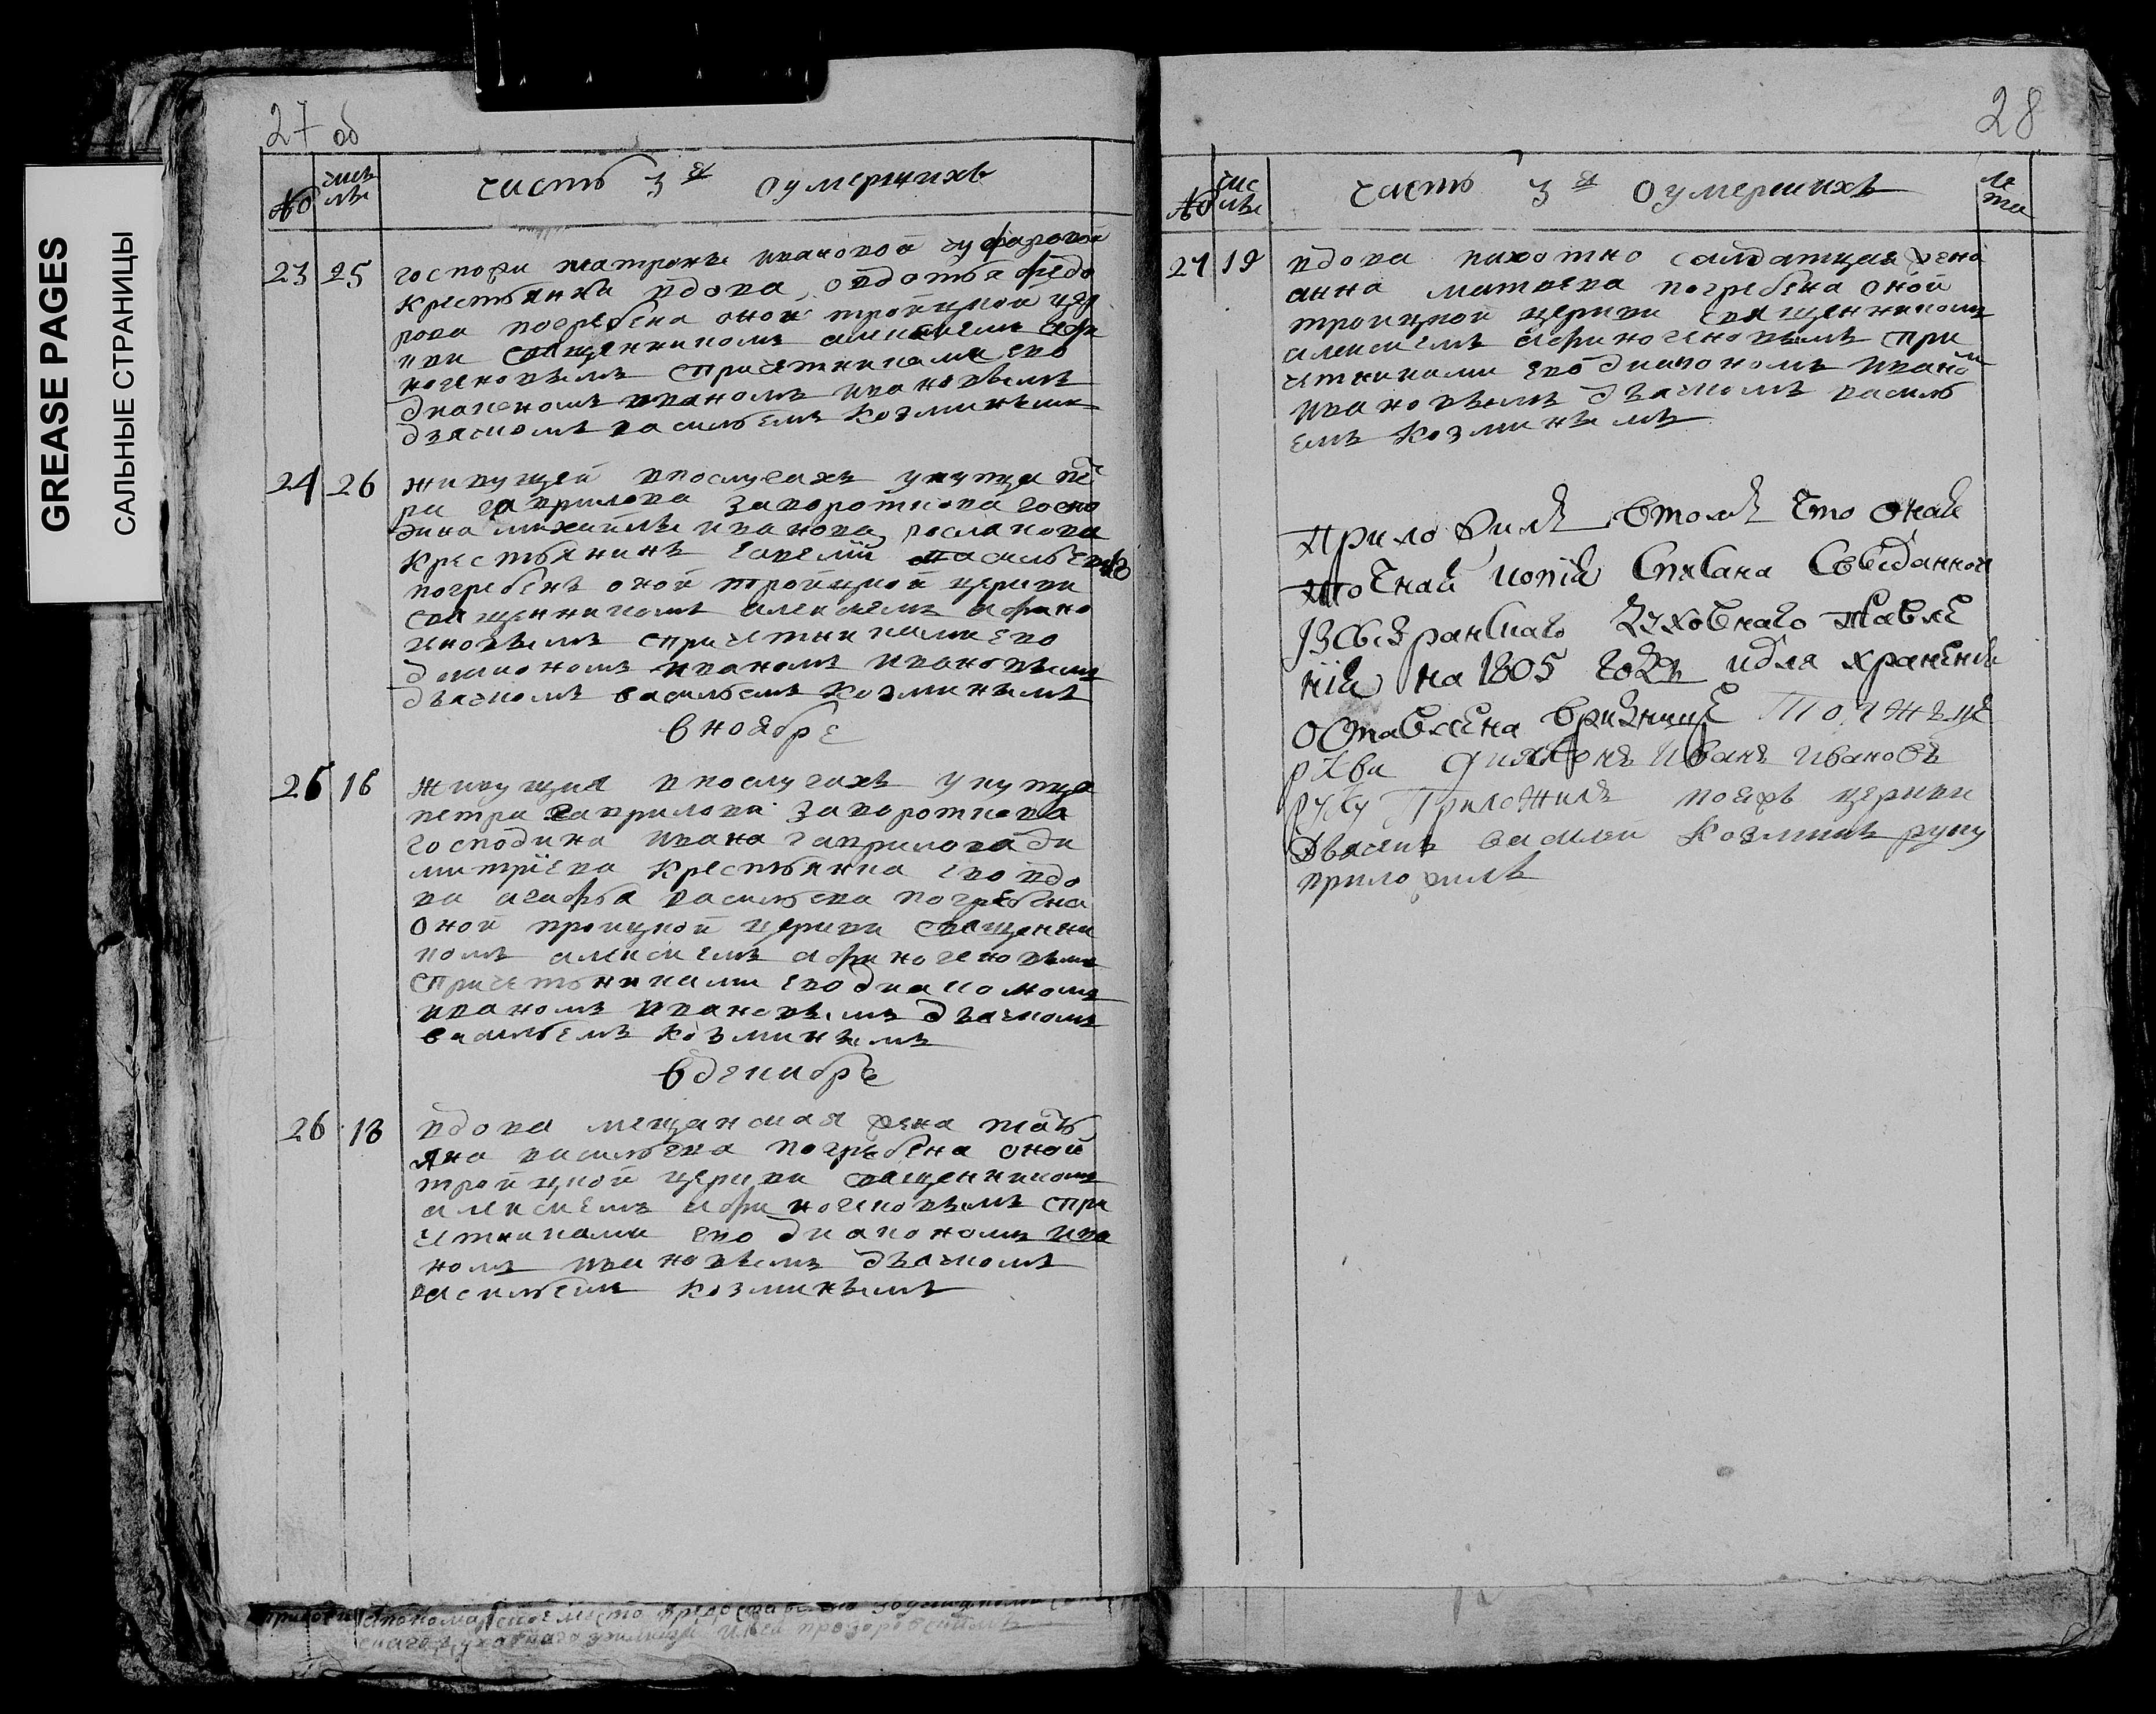 GREASE PAGES
САЛЬНЫЕ СТРАНИЦЫ
27 об
№ числѣ часть 3 я о умершихъ
23 25 госпожи матроны ивановой
крестьянка вдова овдотья федо
рова погребена оной троицкой цер
кви священникомъ алексѣемъ афи
ногеновымъ спричетниками ево
диаконом иваномъ ивановымъ
дьячкомъ васильемъ козминымъ
24 26 живущей впослугахъ укупца пе
тра гаврилова завороткова госпо
дина михаилы иванова росланова
крестьянинъ савелiй васильевъ
погребенъ оной троицкой церкви
священникомъ алексѣемъ афино
геновымъ спричетниками ево
диаконом иваномъ ивановымъ
дьячкомъ васильемъ козминымъ
в ноябре
25 16 живущая впослугахъ укупца
петра гаврилова завороткова
господина ивана гаврилова ди
митрiева крестьянка ево вдо
ва агафья васильева погребена
оной троицкой церкви священни
комъ алексѣемъ афиногеновымъ
спричетниками ево диакономъ
иваномъ ивановымъ дьячкомъ
васильемъ козминымъ
в декабре
26 13 вдова мещанская жена тать
яна васильева погребена оной
троицкой церкви священникомъ
алексѣемъ афиногеновымъ спри
четниками ево диакономъ ива
номъ ивановымъ дьячкомъ
васильемъ козминымъ
28
№ числѣ часть 3 я о умершихъ лета
27 19 вдова пихотно салдатцкая жена
анна матвева погребена оной
троицкой церкви священникомъ
алексѣемъ афиногеновымъ спри
четниками ево диакономъ иваном
ивановымъ дьячкомъ василь
емъ козминымъ
приложилъ втомъ что оная
точная копiя списана Соведанной
изсызранскаго духовнаго правле
нiя на 1805 годъ идля хранения
оставлена вризнице Той же це
ркви дияконъ Иванъ Ивановъ
руку Приложилъ тоя жъ церкви
дьячекъ василей козминъ руку
приложилъ